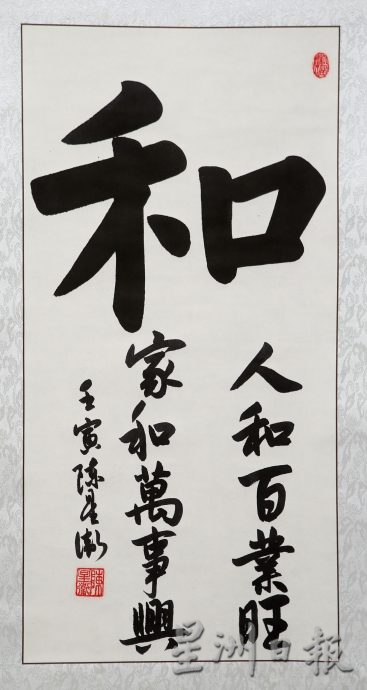 和
人和百業旺
家和萬事興
壬寅陳
星洲日報